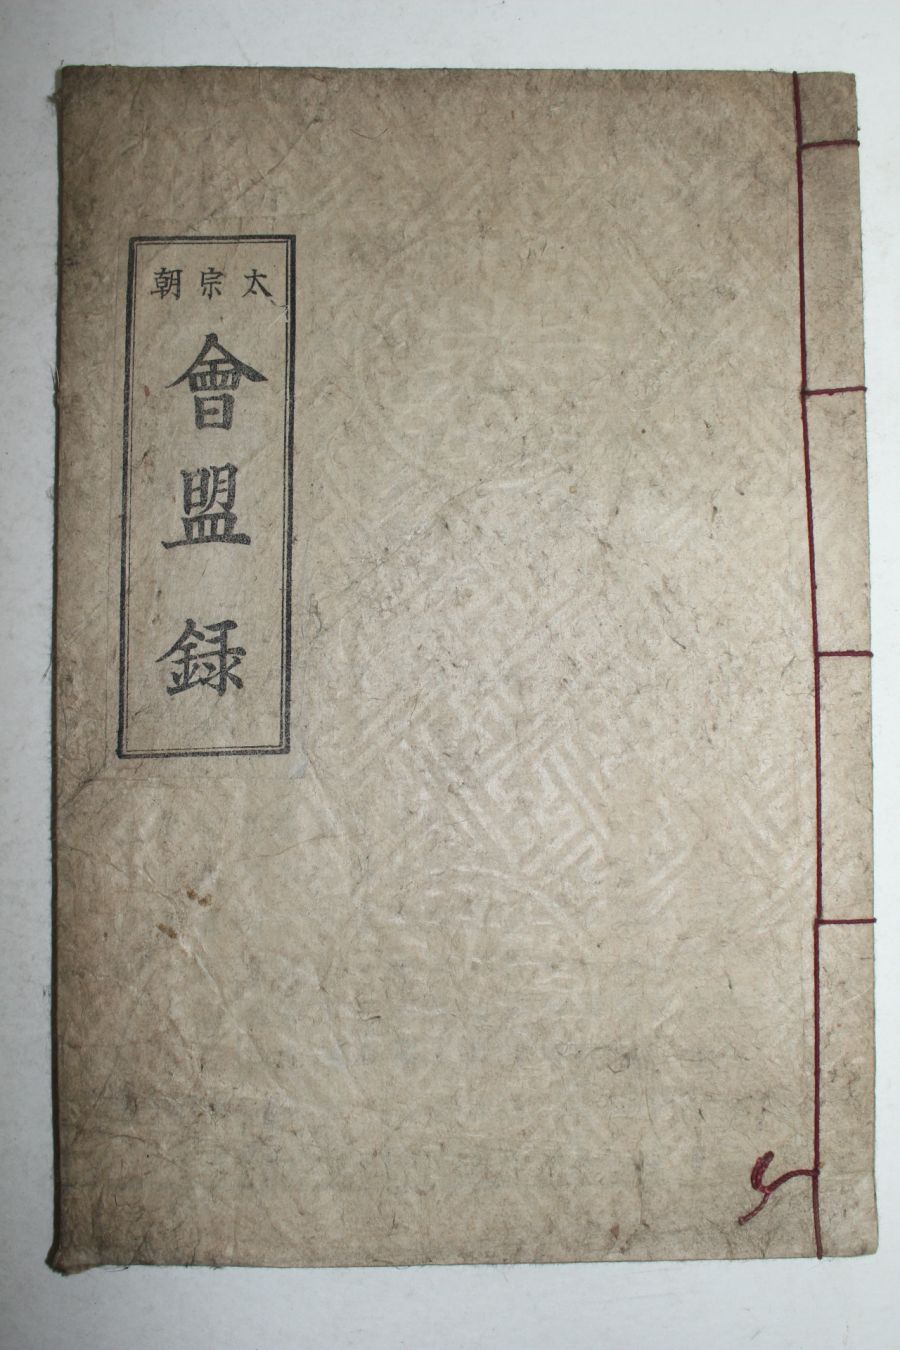 太宗朝
會盟録